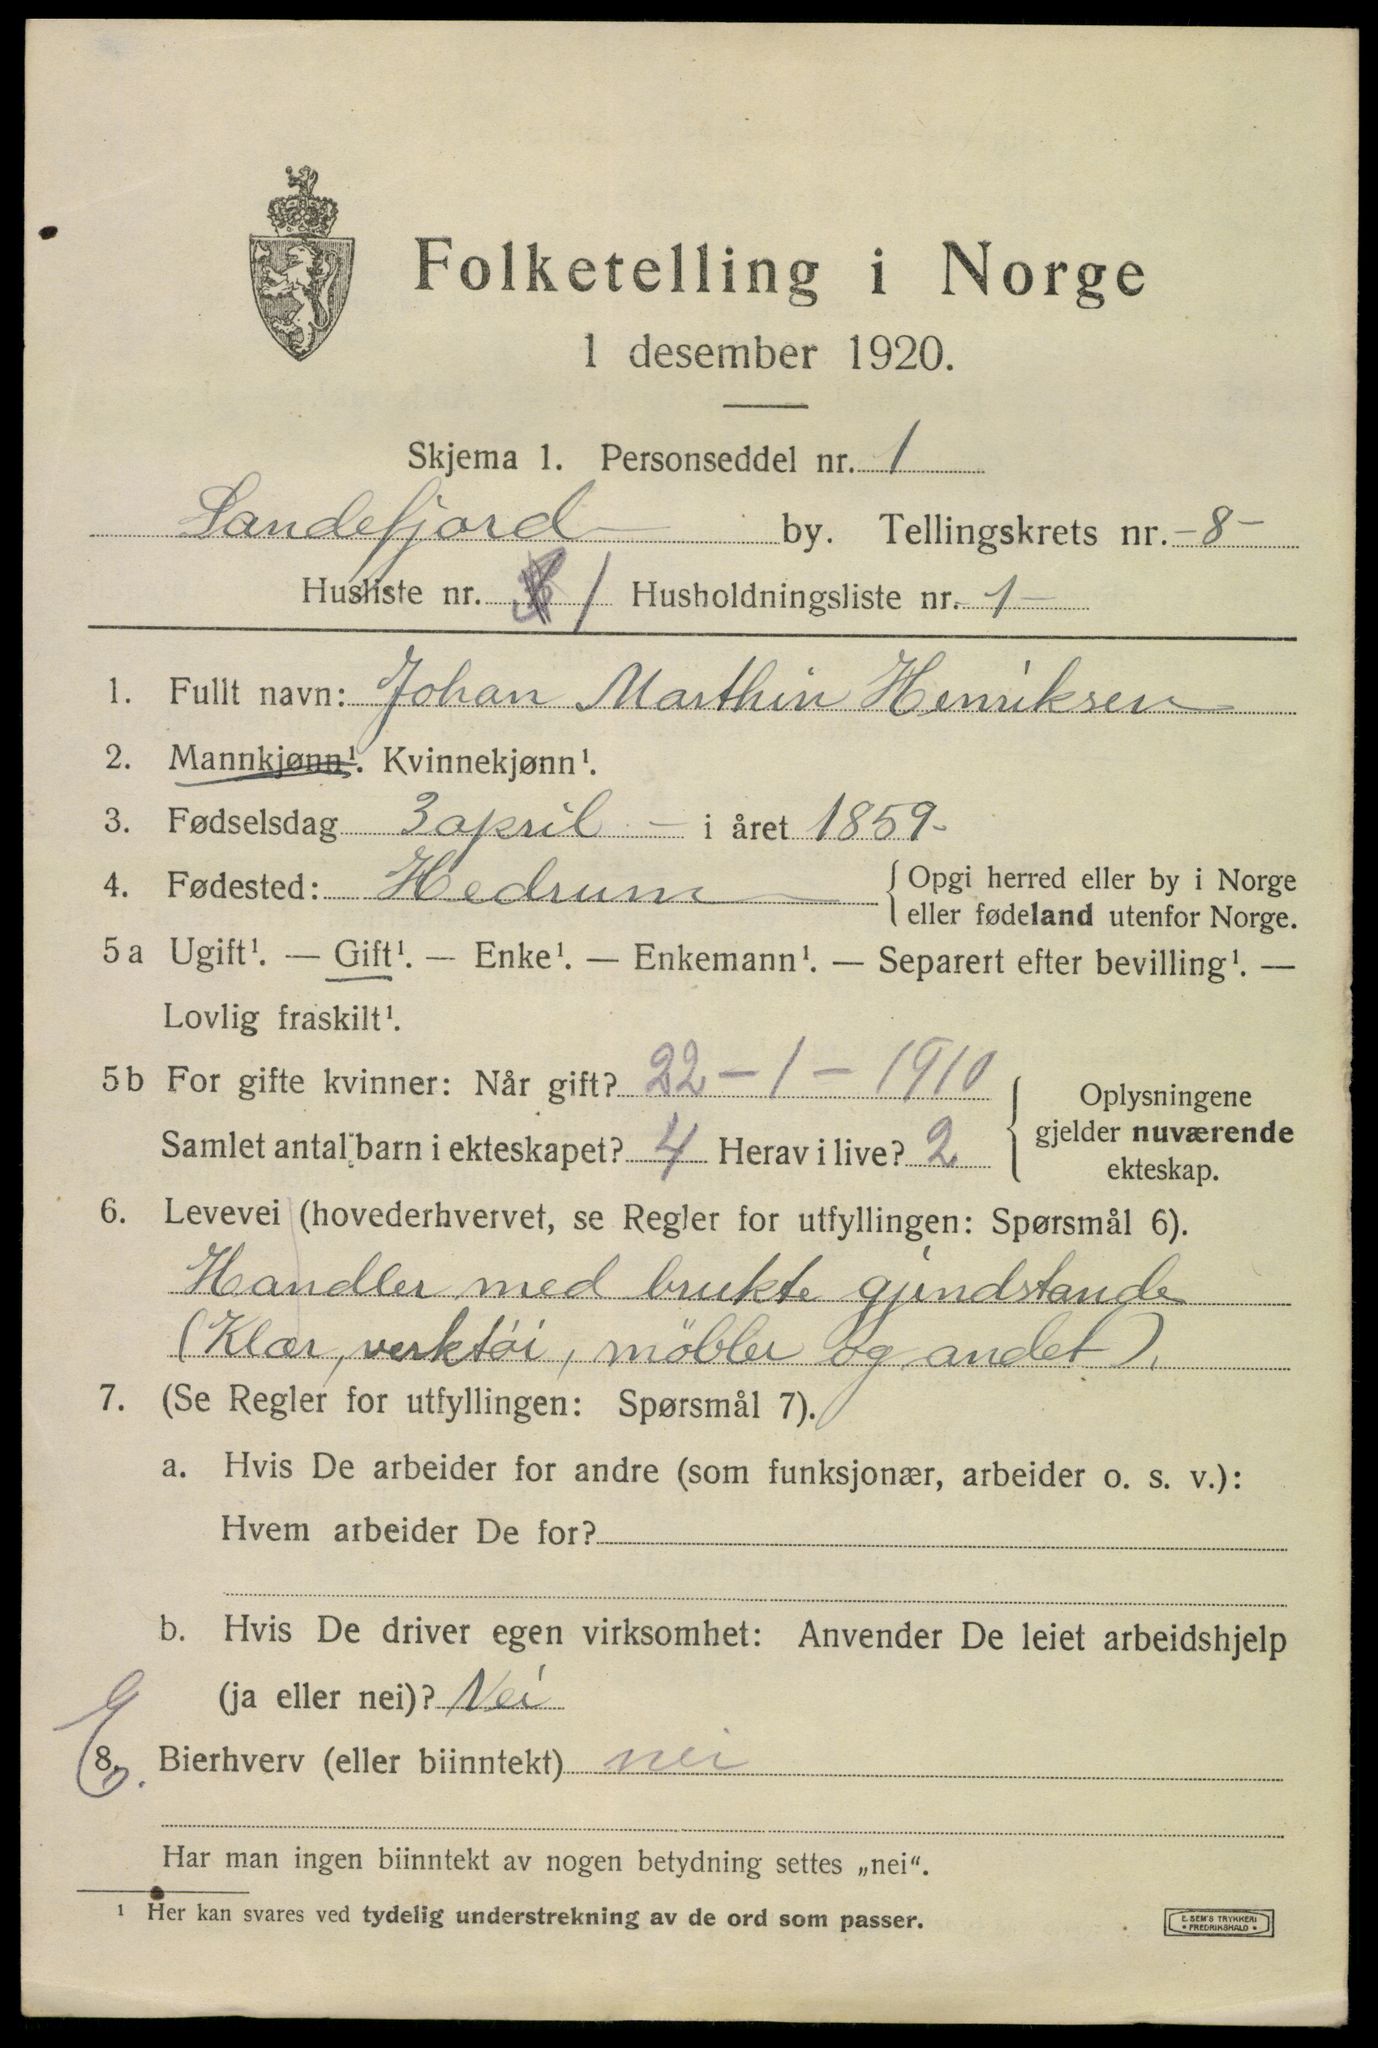 Folketelling i Norge
1 desember 1920.
Skjema 1. Personseddel nr. 1
Sandefjord by. Tellingskrets nr. -8-
Husliste nr. 1 Husholdningsliste nr. 1-
1. Fullt navn: Johan Marthin Henriksen
2. Mannkjønn¹. Kvinnekjønn¹.
3. Fødselsdag 3 april - i året 1859-
4. Fødested: Hedrum { Opgi herred eller by i Norge
eller fødeland utenfor Norge.
5a Ugift¹. — Gift¹. — Enke¹. — Enkemann¹. — Separert efter bevilling¹. —
Lovlig fraskilt¹.
5b For gifte kvinner: Når gift? 22-1-1910
Samlet antal barn i ekteskapet? 4 Herav i live? 2
Oplysningene
gjelder nuværende
ekteskap.
6. Levevei (hovederhvervet, se Regler for utfyllingen: Spørsmål 6).
Handler med brukte gjendstande
(Klær, verktöi, möbler og andet).
7. (Se Regler for utfyllingen: Spørsmål 7).
a. Hvis De arbeider for andre (som funksjonær, arbeider o. s. v.):
Hvem arbeider De for?
b. Hvis De driver egen virksomhet: Anvender De leiet arbeidshjelp
(ja eller nei)? Nei
8. Bierhverv (eller biinntekt) nei
Har man ingen biinntekt av nogen betydning settes „nei“.
¹ Her kan svares ved tydelig understrekning av de ord som passer.
E. SEM'S TRYKKERI
• FREDRIKSHALD •